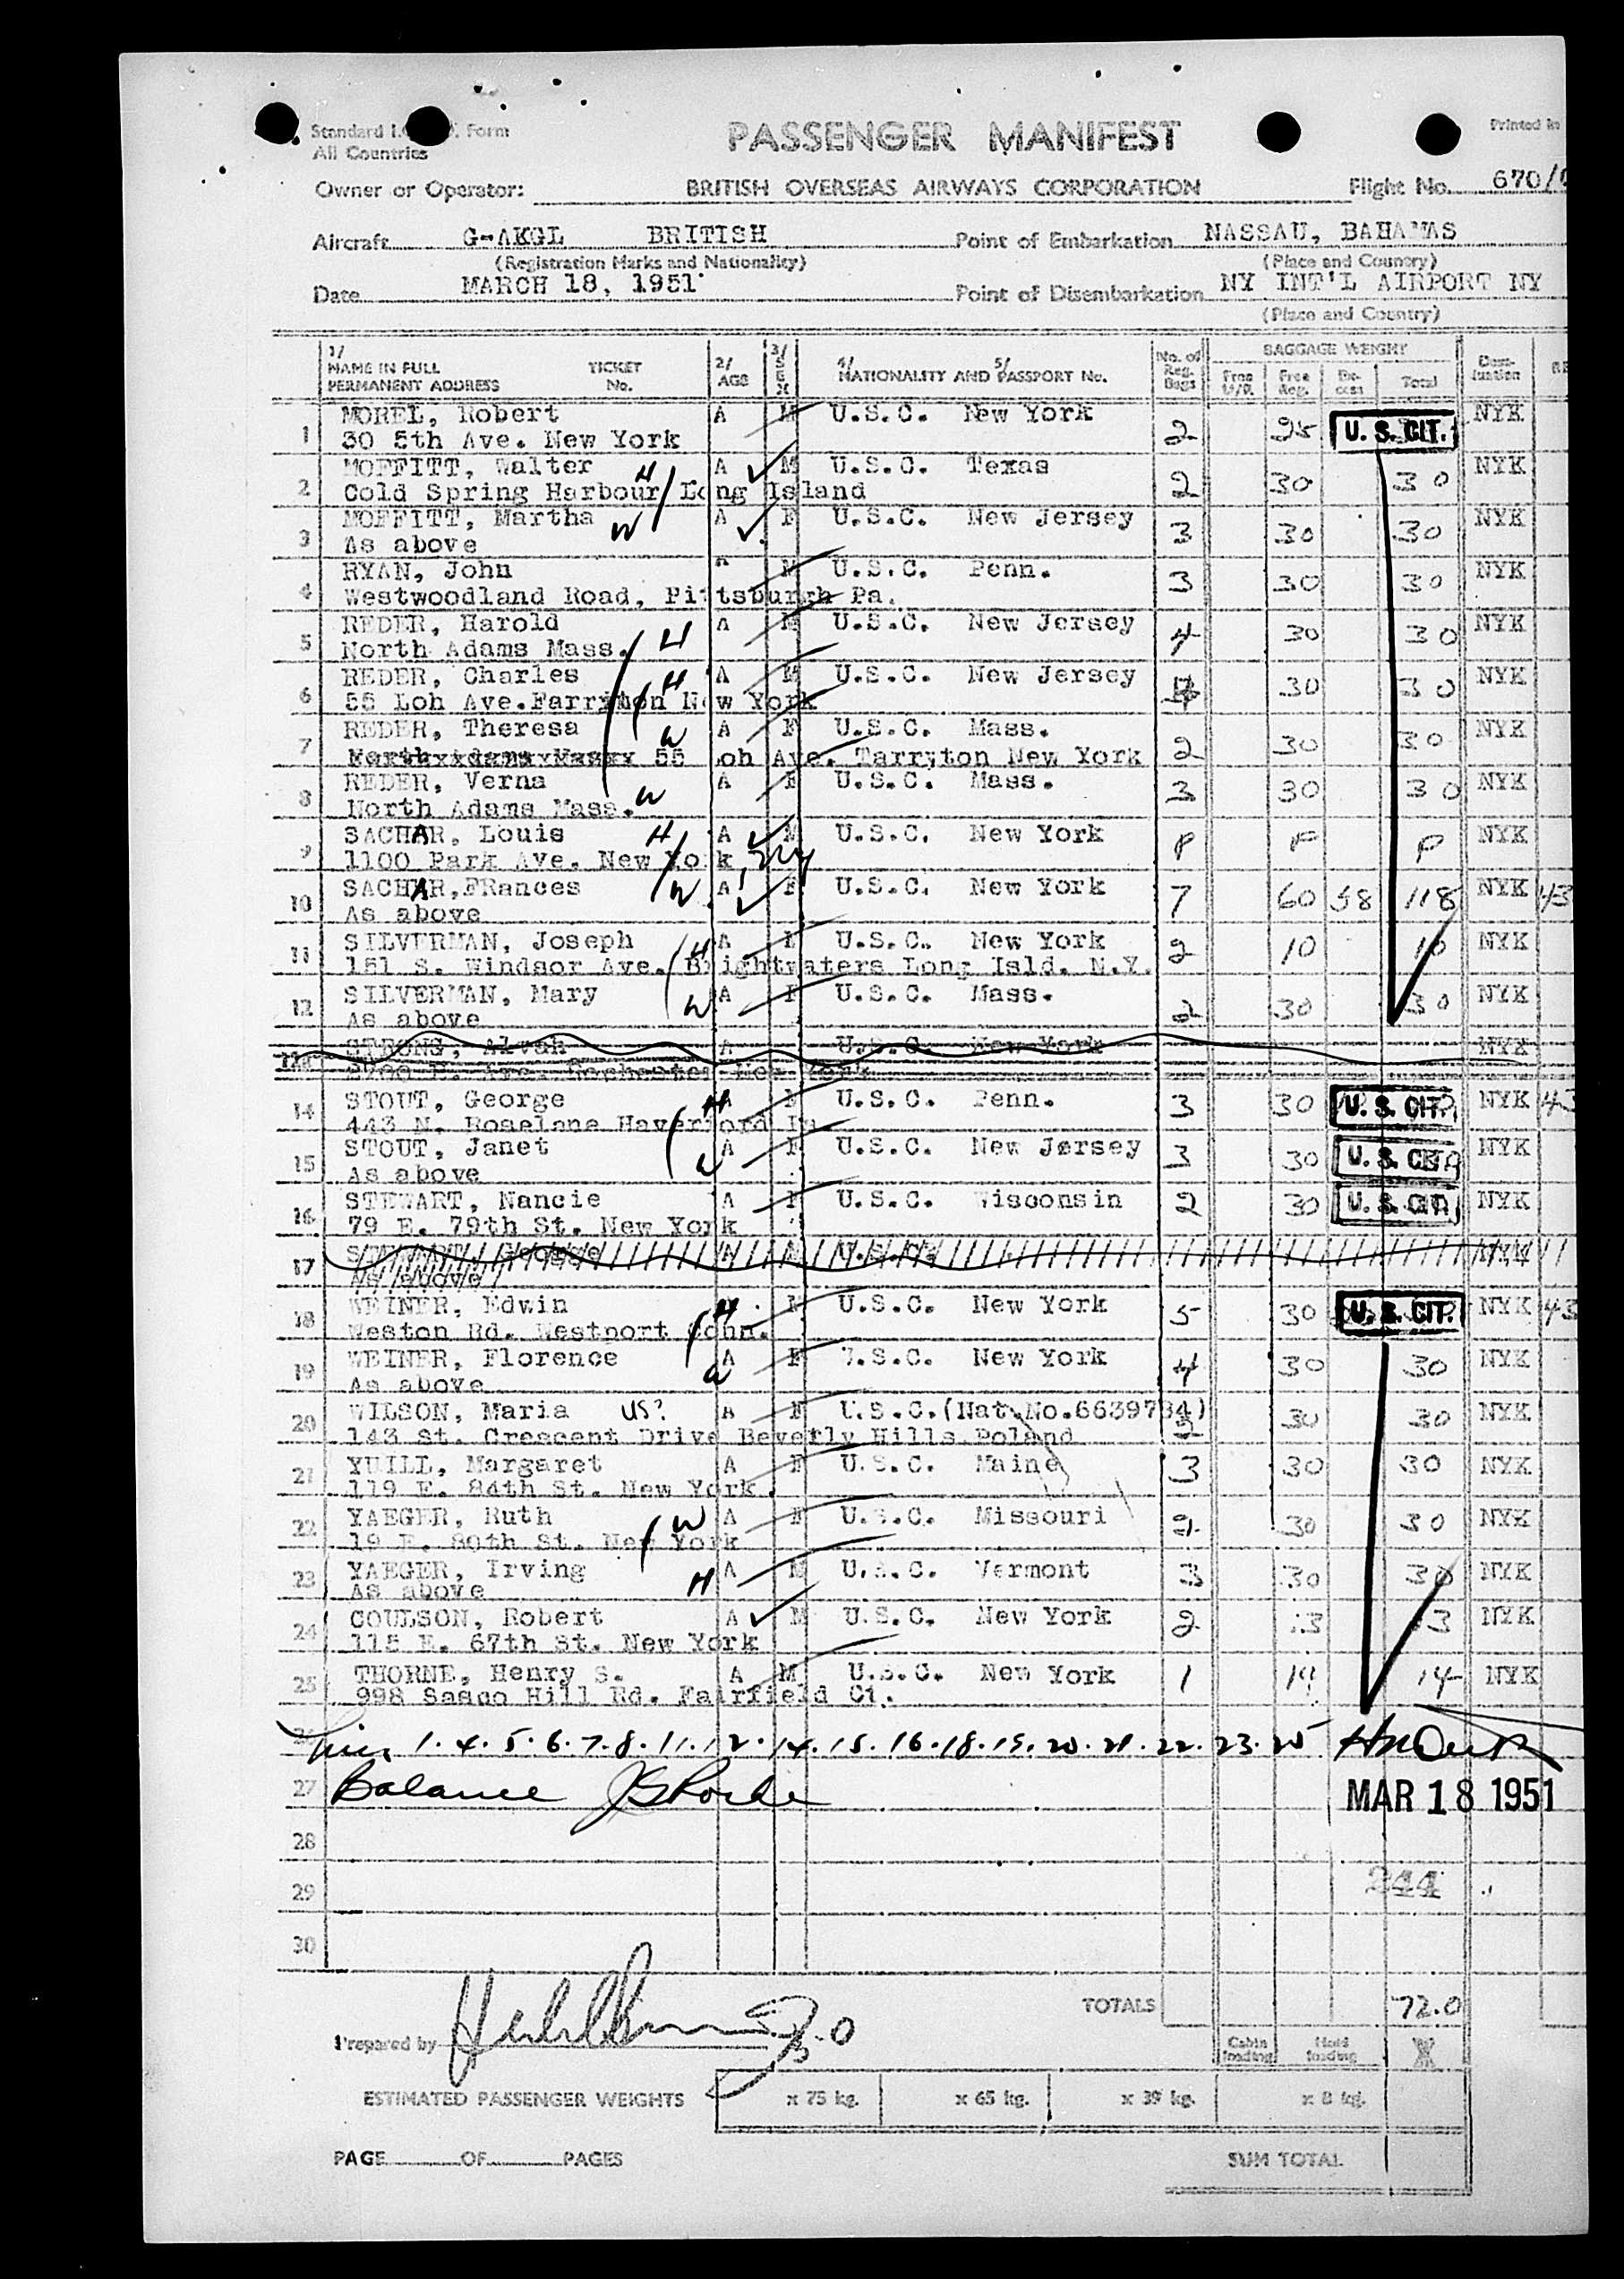 Standard I. Form
All Countries
PASSENGER MANIFEST
Printed in
Owner or Operator: BRITISH OVERSEAS AIRWAYS CORPORATION Flight No. 670/
Aircraft G-AKGL BRITISH Point of Embarkation NASSAU, BAHAMAS
(Registration Marks and Nationality) (Place and Country)
Date MARCH 18, 1951 Point of Disembarkation NY INT'L AIRPORT NY
(Place and Country)
1/ NAME IN FULL PERMANENT ADDRESS TICKET No. 2/ AGE 3/ SEX 4/ NATIONALITY AND 5/ PASSPORT No. No. of Reg. Bags BAGGAGE WEIGHT Free Reg. Ex-cess Total Dest-ination
1 MOREL, Robert A M U.S.C. New York 2 25 U. S. CIT. NYK
30 5th Ave. New York
2 MOFFITT, Walter H A M U.S.C. Texas 2 30 30 NYK
Cold Spring Harbour Long Island
3 MOFFITT, Martha W A F U.S.C. New Jersey 3 30 30 NYK
As above
4 RYAN, John A M U.S.C. Penn. 3 30 30 NYK
Westwoodland Road, Pittsburgh Pa.
5 REDER, Harold H A M U.S.C. New Jersey 4 30 30 NYK
North Adams Mass.
6 REDER, Charles H A M U.S.C. New Jersey 4 30 30 NYK
55 Loh Ave. New York
7 REDER, Theresa W A F U.S.C. Mass. 2 30 30 NYK
55 Loh Ave. Tarryton New York
8 REDER, Verna W A F U.S.C. Mass. 3 30 30 NYK
North Adams Mass.
9 SACHAR, Louis H A M U.S.C. New York P P P NYK
1100 Park Ave. New York, NY
10 SACHAR, FRances W A F U.S.C. New York 7 60 58 118 NYK 43
As above
11 SILVERMAN, Joseph H A M U.S.C. New York 2 10 10 NYK
151 S. Windsor Ave. Brightwaters Long Isld. N.Y.
12 SILVERMAN, Mary W A F U.S.C. Mass. 2 30 30 NYK
As above
STRONG, Alvah A U.S.C. New York NYK
14 STOUT, George H A M U.S.C. Penn. 3 30 U. S. CIT. NYK 43
443 N. Roselane Haverford Pa.
15 STOUT, Janet W A F U.S.C. New Jersey 3 30 U. S. CIT. NYK
As above
16 STEWART, Nancie A F U.S.C. Wisconsin 2 30 U. S. CIT. NYK
79 E. 79th St. New York
17 STEWART, George A M U.S.C. NYK
As above
18 WEINER, Edwin H M U.S.C. New York 5 30 U. S. CIT. NYK 43
Weston Rd. Westport Conn.
19 WEINER, Florence W A F U.S.C. New York 4 30 30 NYK
As above
20 WILSON, Maria US? A F U.S.C.(Nat.No.6639784) 2 30 30 NYK
143 St. Crescent Drive Beverly Hills Poland
21 YUILL, Margaret A F U.S.C. Maine 3 30 30 NYK
119 E. 84th St. New York.
22 YAEGER, Ruth W A F U.S.C. Missouri 2 30 30 NYK
19 E. 80th St. New York
23 YAEGER, Irving H A M U.S.C. Vermont 3 30 30 NYK
As above
24 COULSON, Robert A M U.S.C. New York 2 13 13 NYK
115 E. 67th St. New York
25 THORNE, Henry S. A M U.S.C. New York 1 14 14 NYK
998 Sasco Hill Rd. Fairfield Ct.
1. 4. 5. 6. 7. 8. 11. 12. 14. 15. 16. 18. 19. 20. 21. 22. 23. 25
27 Balance
MAR 18 1951
28
29 244
30
TOTALS 720
Prepared by
Cabin loading Hold loading
ESTIMATED PASSENGER WEIGHTS x 75 kg. x 65 kg. x 39 kg. x 8 kg.
PAGE OF PAGES SUM TOTAL